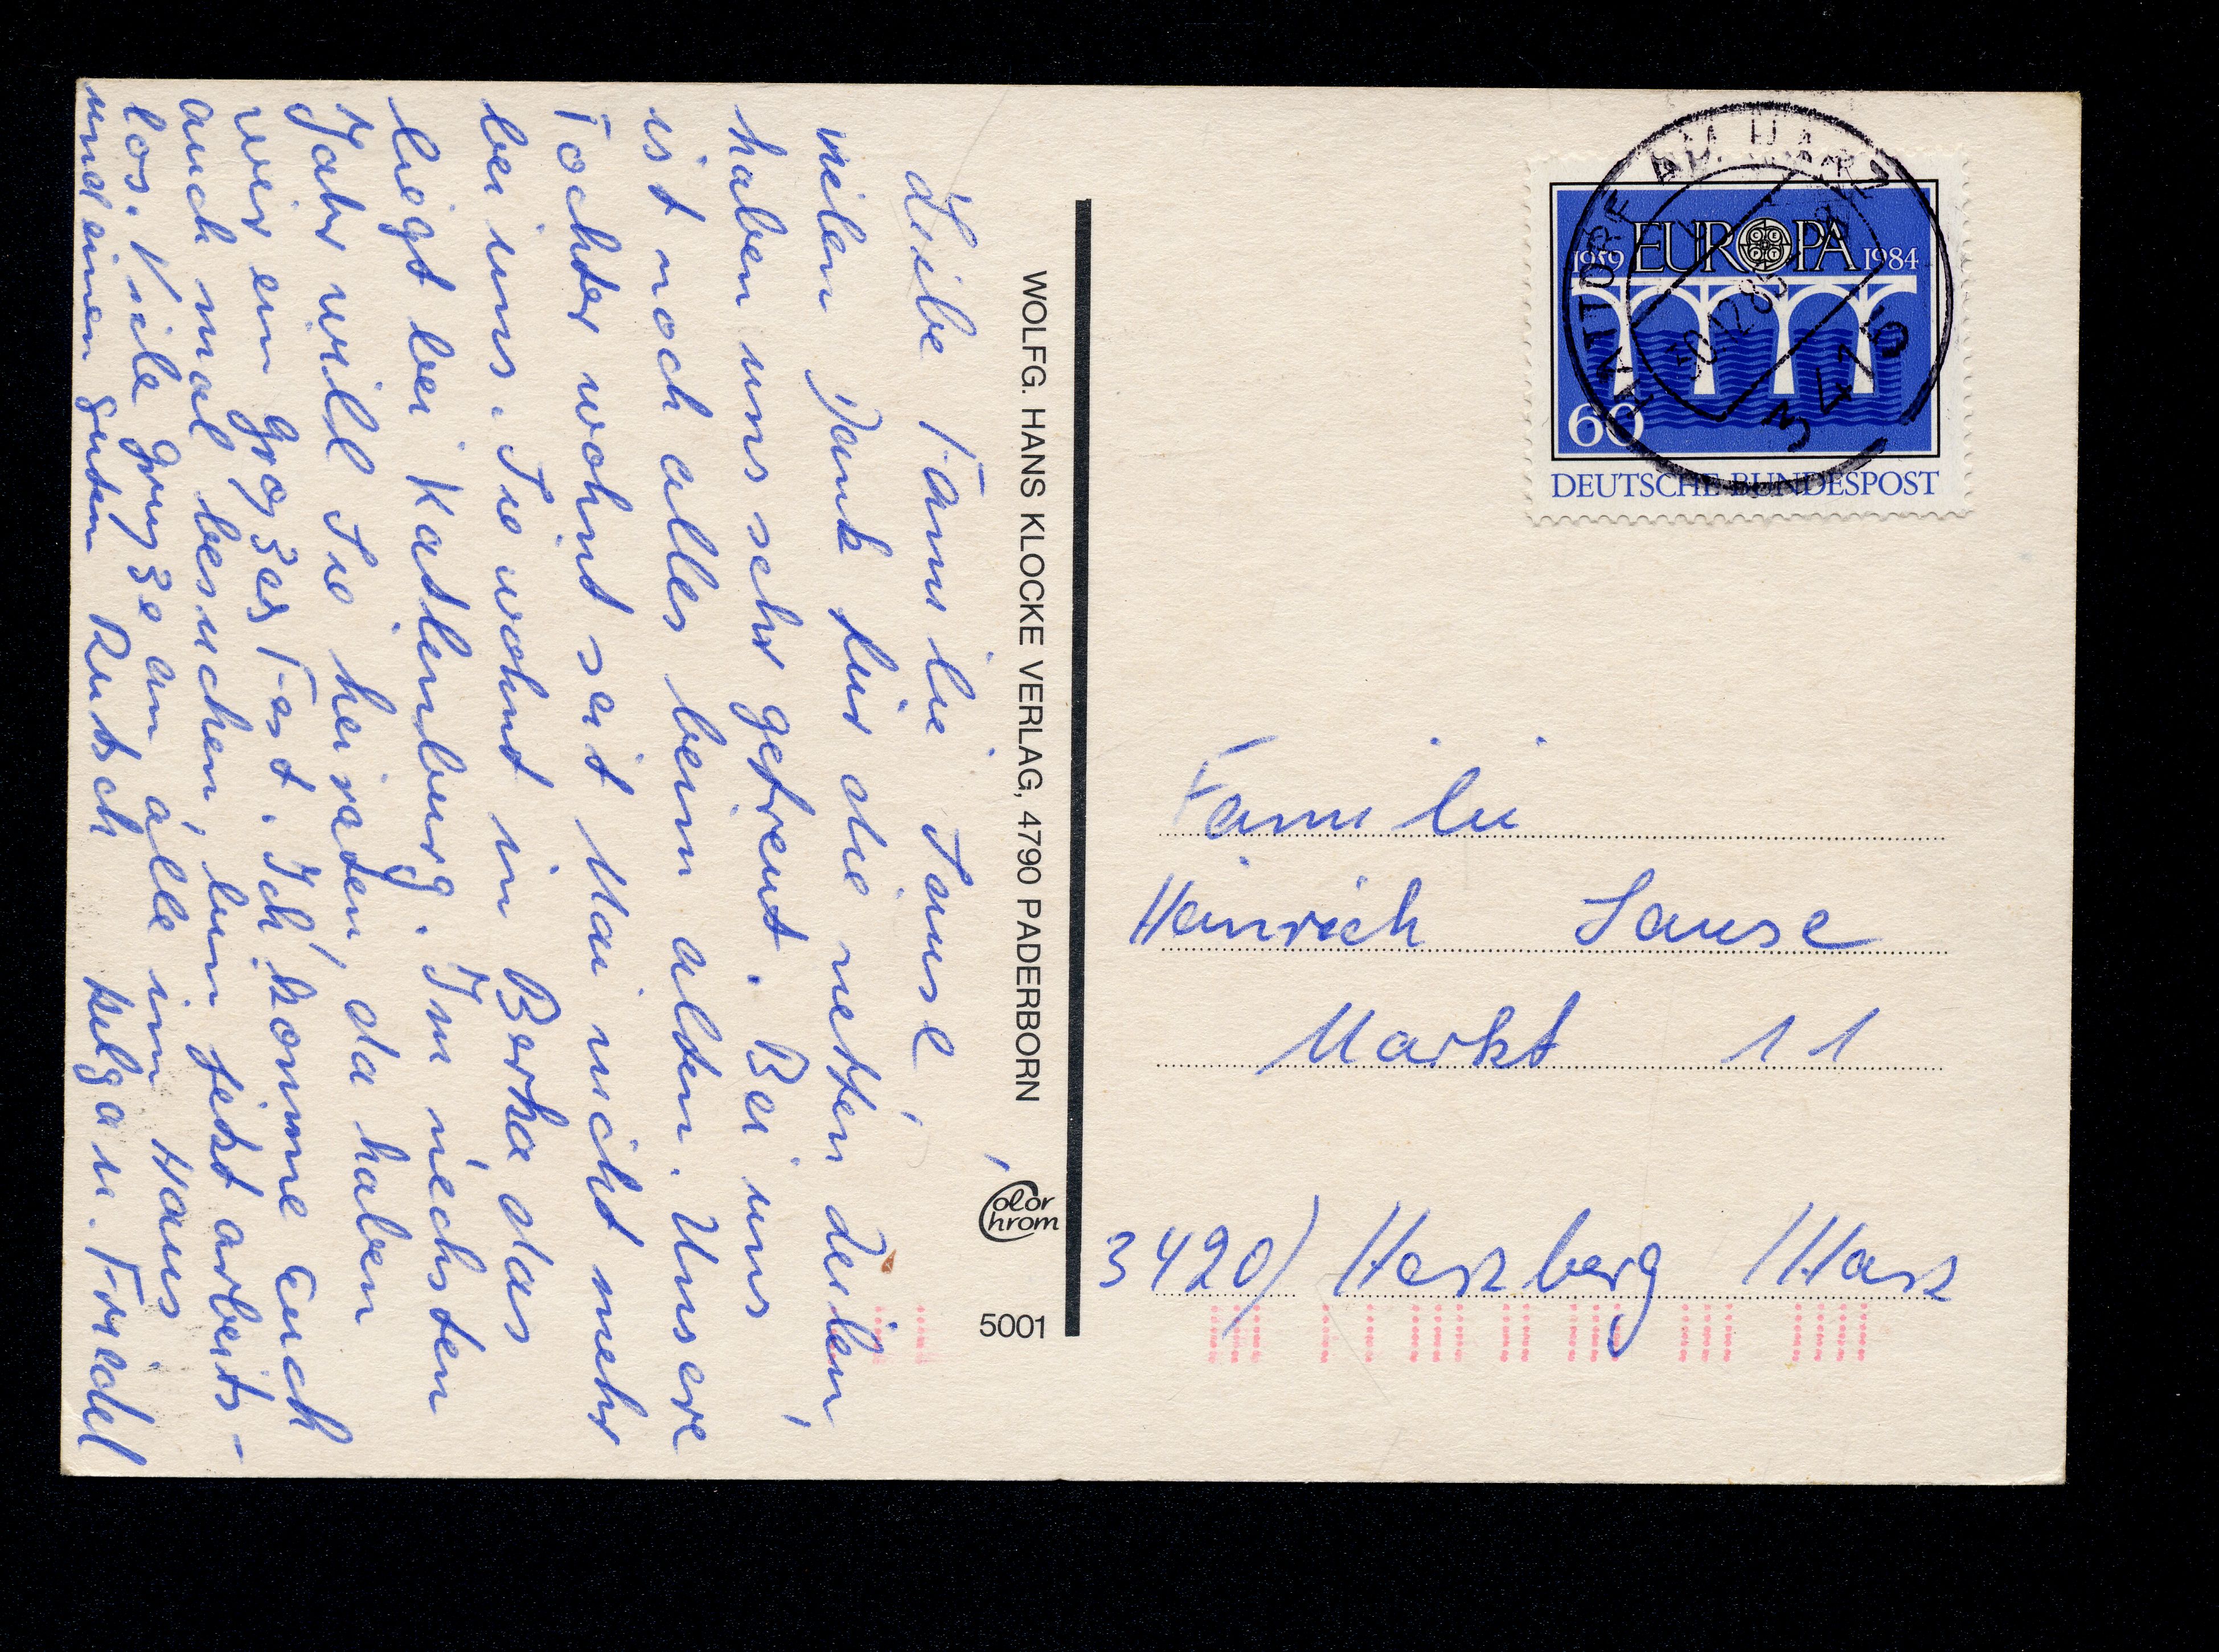 Liebe Familie Sause,
vielen Dank für die netten Zeilen,
haben uns sehr gefreut. Bei uns
ist noch alles beim alten. Unsere
Tochter wohnt seit Mai nicht mehr
bei uns. Sie wohnt in Berka das
liegt bei Katlenburg. Im nächsten
Jahr will Sie heiraten, da haben
wir ein großes Fest. Ich komme Euch
auch mal besuchen, bin jetzt arbeits-
los. Viele Grüße an alle im Haus
und einen guten Rutsch Helga u. Friedel
WOLFG. HANS KLOCKE VERLAG, 4790 PADERBORN
Color Chrom
5001
EUROPA
1959 1984
60
DEUTSCHE BUNDESPOST
AM HARZ
3475
Familie
Heinrich Sause
Markt 11
3420) Herzberg /Harz